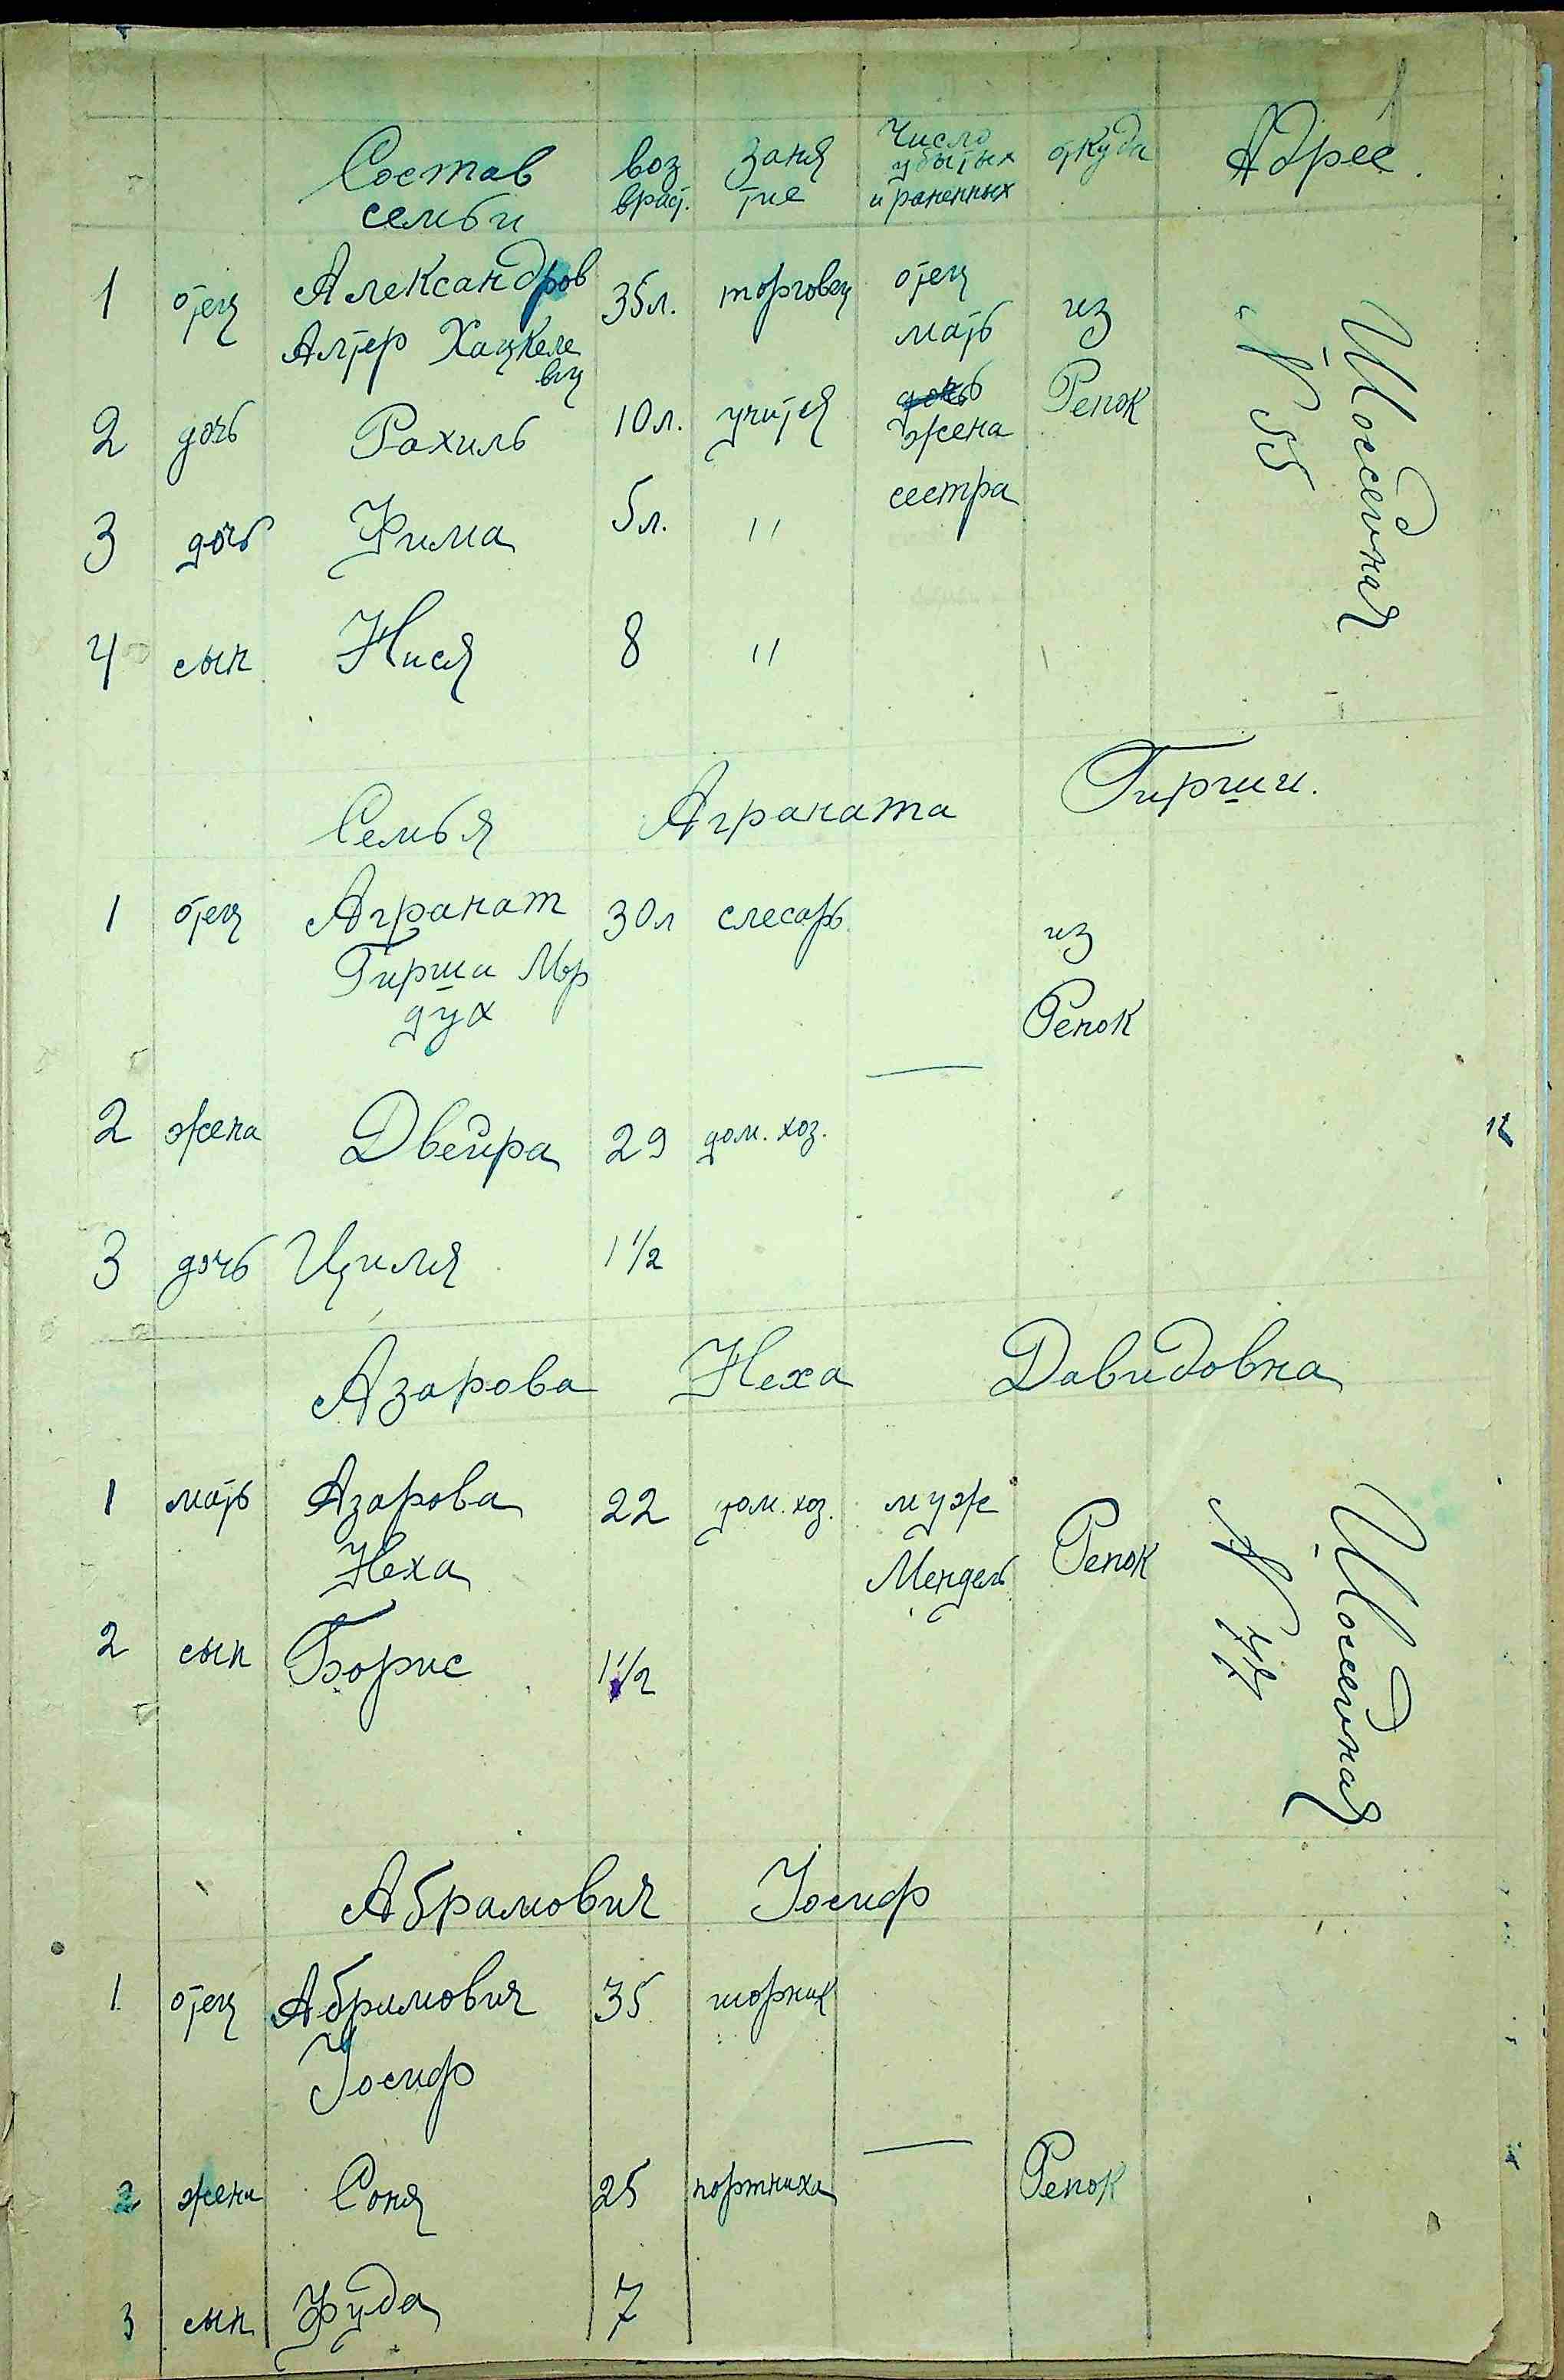 Состав семьи воз враст. заня тие Число убытых и раненных откуда Адрес.
1 отец Александров Алтер Хацкеле вич 35л. торговец отец мать из Репок Шоссейная № 55
2 дочь Рахиль 10л. учится жена
3 дочь Фима 5л. " сестра
4 сын Нися 8 "
Семья Аграната Гирши.
1 отец Агранат Гирша Мор дух 30л слесарь из Репок
2 жена Двейра 29 дом. хоз. —
3 дочь Циля 1 1/2
Азарова Неха Давидовна
1 мать Азарова Неха 22 дом. хоз. муж Мендель Репок Шоссейная № 77
2 сын Борис 1 1/2
Абрамович Иосиф
1 отец Абрамович Иосиф 35 шорник
2 жена Соня 25 портниха — Репок
3 сын 7
12